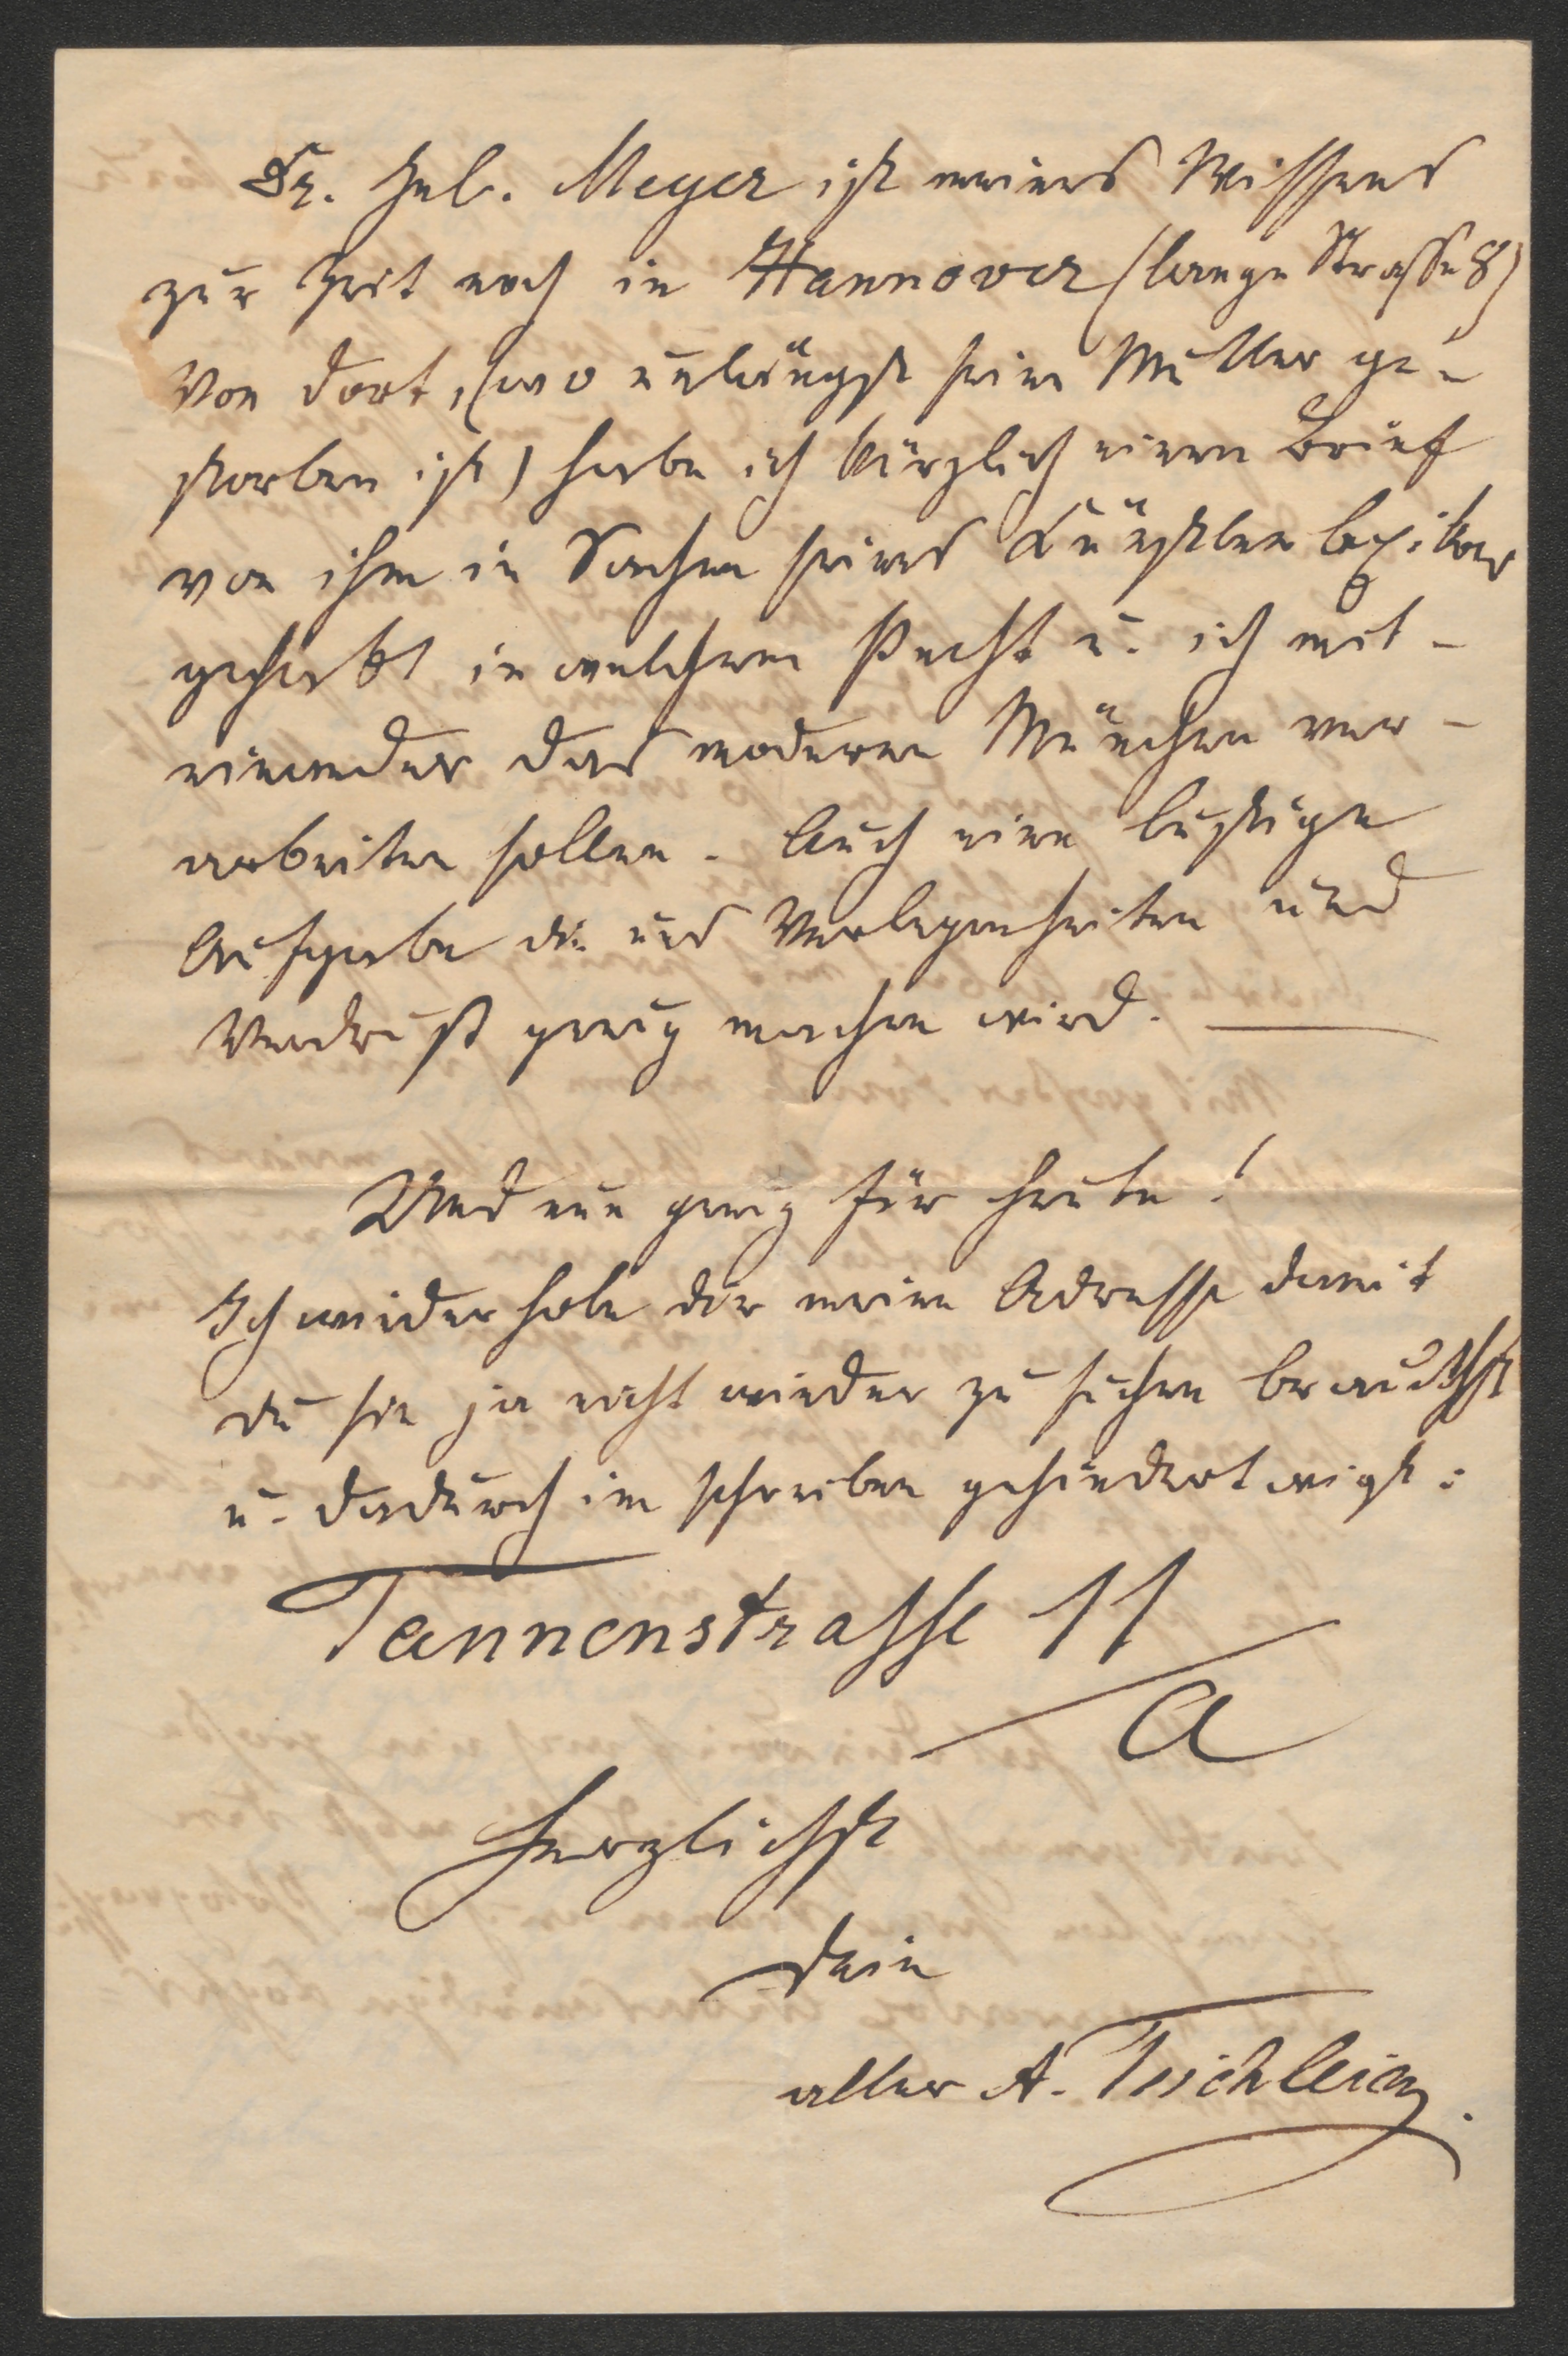 Dr. Jul. Meyer ist meines Wissens
zur Zeit noch in Hannover (lange Strasse 8)
Von dort, (wo unlängst seine Mutter ge-
storben ist) habe ich kürzlich einen Brief
von ihm in Sachen seines Künstlerlexikons
gehabt in welchem Pecht u. ich mit-
einander das moderne München ver-
arbeiten sollen. Auch eine lustige
Aufgabe die uns Verlegenheiten und
Verdruß genug machen wird. —
Und nun genug für heute!
Ich wiederhole dir meine Adresse damit
du sie ja nicht wieder zu suchen brauchst
u. dadurch im schreiben gehindert bist:
Tannenstrasse 11/a
Herzlichst
Dein
alter A. Teichlein.